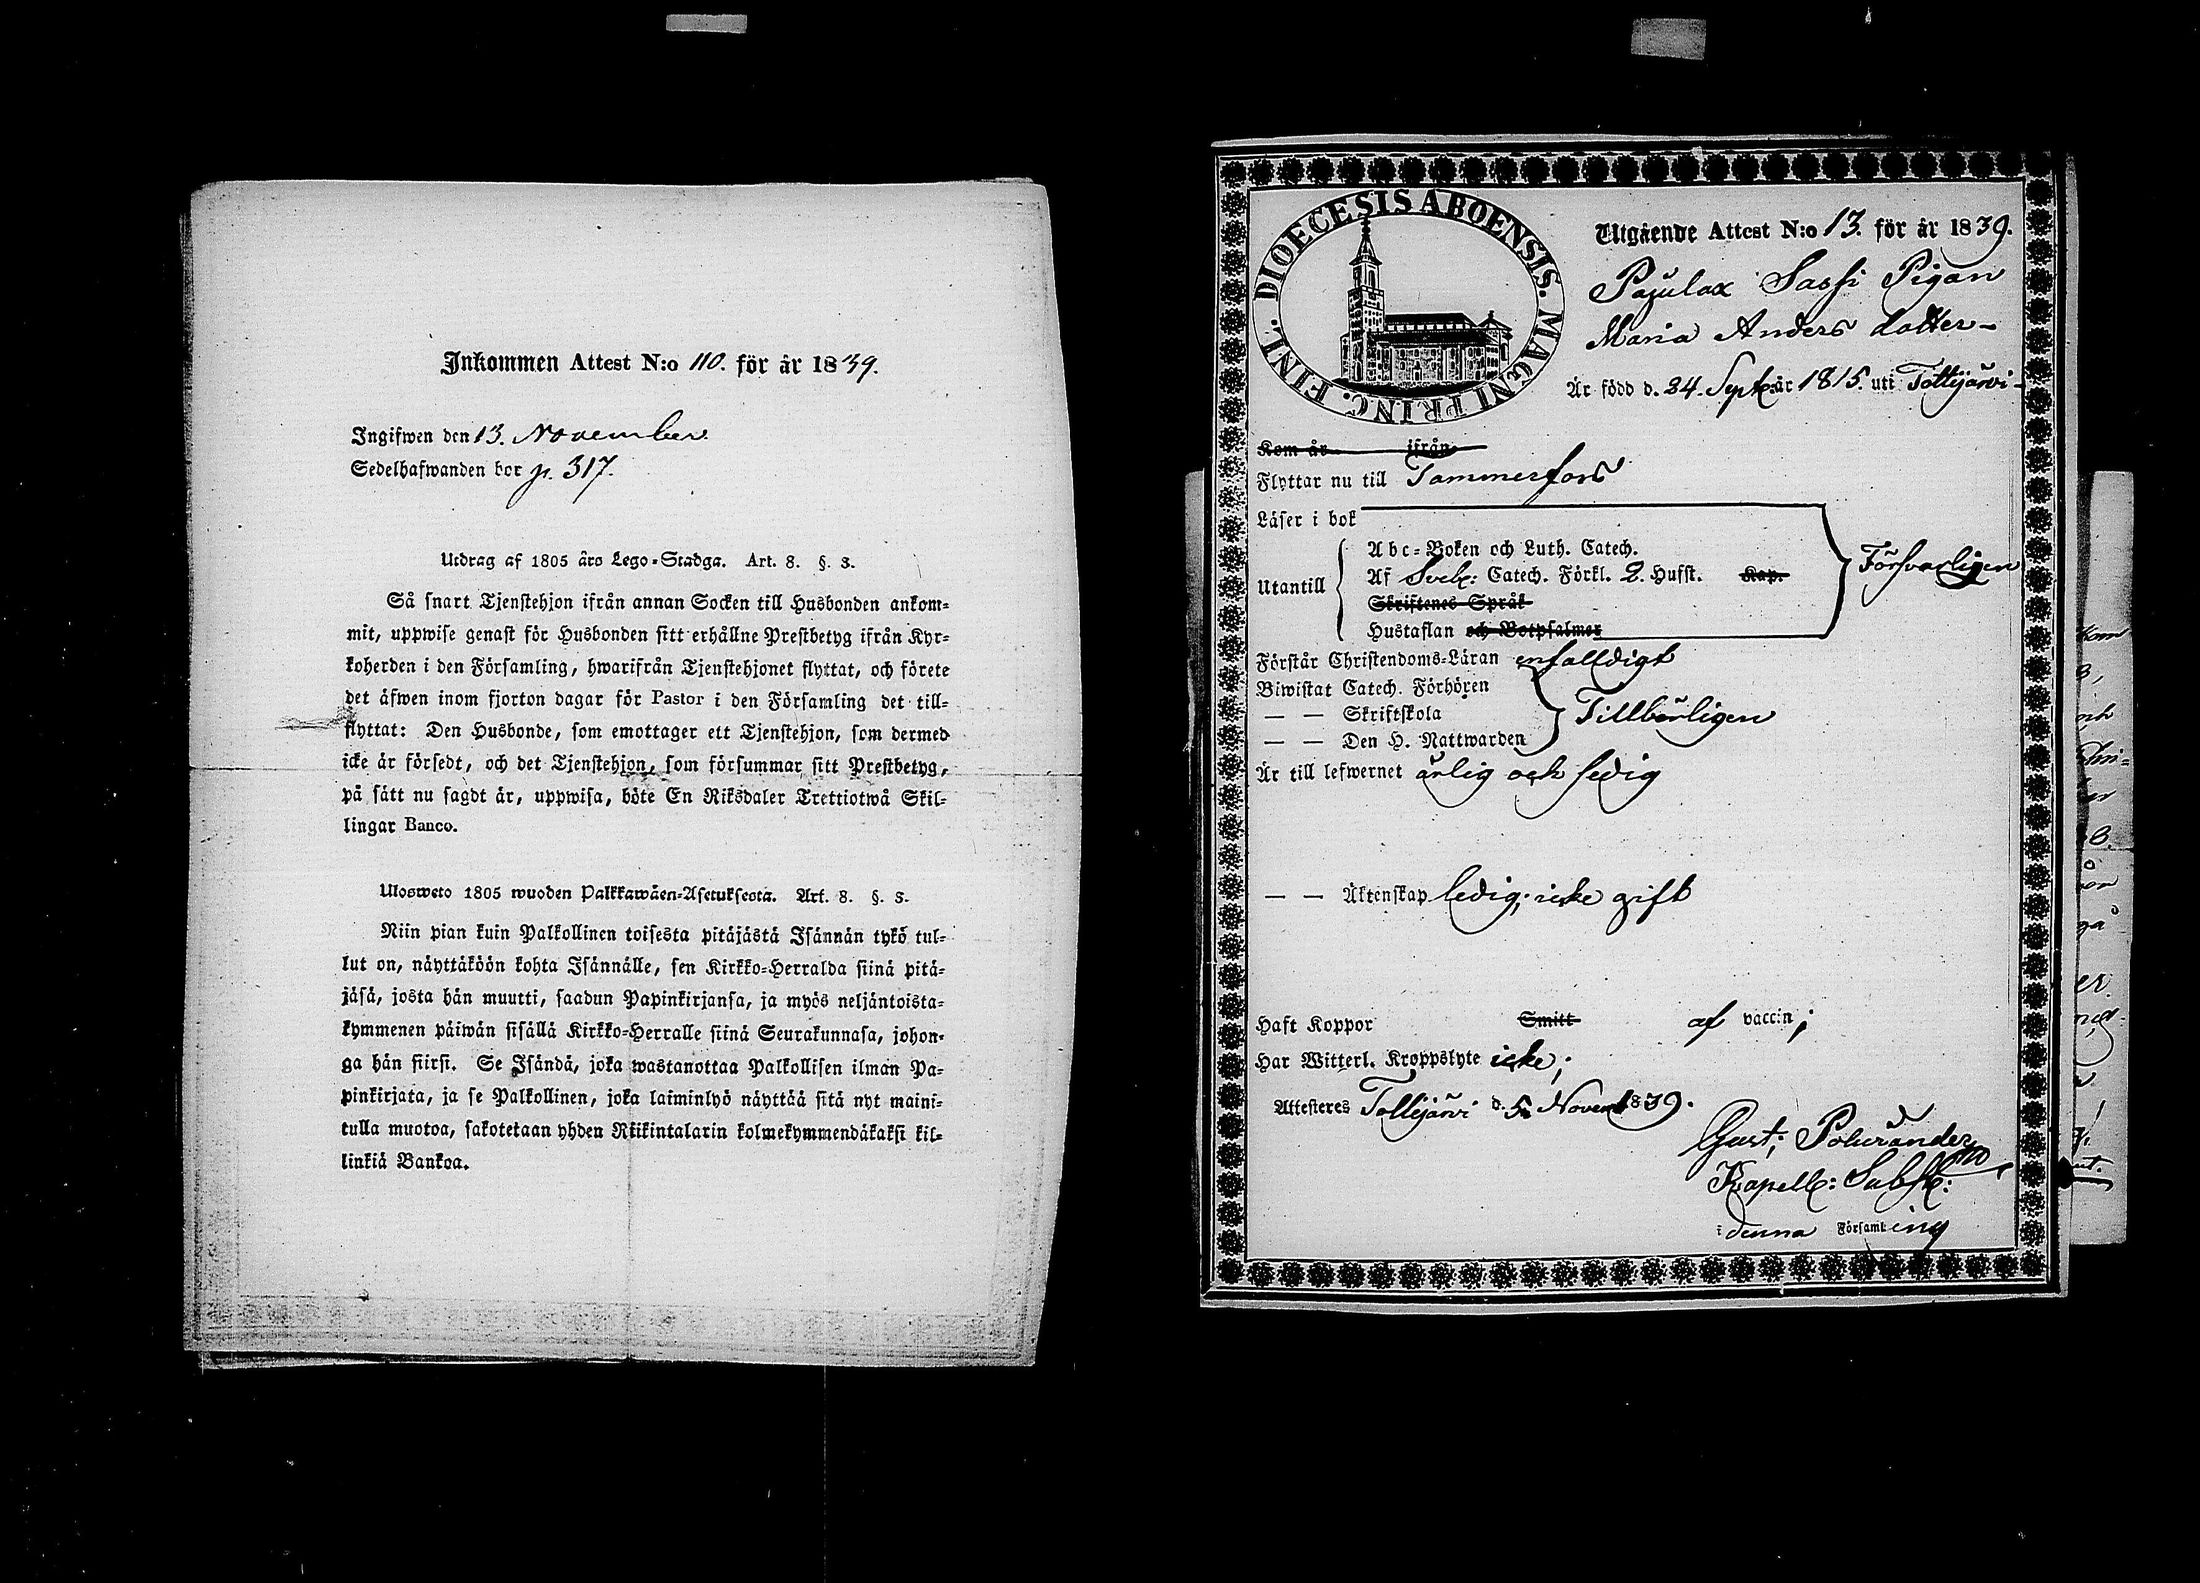 Inkommen Attest N:o 110. för år 1839.
Ingifwen den 13. November.
Sedelhafwanden bor p. 317.
Utdrag af 1805 års Lego-Stadga. Art. 8. §. 3.
Så snart Tjenstehjon ifrån annan Socken till Husbonden ankom-
mit, uppwise genast för Husbonden sitt erhållne Prestbetyg ifrån Kyr-
koherden i den Församling, hwarifrån Tjenstehjonet flyttat, och förete
det äfwen inom fjorton dagar för Pastor i den Församling det till-
flyttat: Den Husbonde, som emottager ett Tjenstehjon, som dermed
icke är försedt, och det Tjenstehjon, som försummar sitt Prestbetyg,
på sätt nu sagdt är, uppwisa, böte En Riksdaler Trettiotwå Skil-
lingar Banco.
Ulosweto 1805 wuoden Palkkawäen-Asetuksesta. Art. 8. §. 3.
Niin pian kuin Palkollinen toisesta pitäjästä Isännän tykö tul-
lut on, näyttäköön kohta Isännälle, sen Kirkko-Herralda siinä pitä-
jäsä, josta hän muutti, saadun Papinkirjansa, ja myös neljäntoista-
kymmenen päiwän sisällä Kirkko-Herralle siinä Seurakunnasa, johon-
ga hän siirsi. Se Isändä, joka wastanottaa Palkollisen ilman Pa-
pinkirjata, ja se Palkollinen, joka laiminlyö näyttää sitä nyt maini-
tulla muotoa, sakotetaan yhden Riikintalarin kolmekymmendäkaksi kil-
linkiä Bankoa.
DIOECESIS ABOENSIS. MAGNI PRINC. FINL.
Utgående Attest N:o 13. för år 1839.
Pajulax Sassi Pigan
Maria Anders dotter
Är född d. 24. Sept: år 1815. uti Tottijärvi
Kom år ifrån
Flyttar nu till Tammerfors
Läser i bok
Abc-Boken och Luth. Catech.
Utantill Af Sveb: Catech. Förkl. 2. Hufst. Kap. Försvarligen
Skriftenes Språk
Hustaflan och Botpsalmer
Förstår Christendoms-Läran enfalldigt
Biwistat Catech. Förhören
— — Skriftskola Tillbörligen
— — Den H. Nattwarden
Är till lefwernet ärlig och sedig
— — Äktenskap ledig; icke gift
Haft Koppor Smitt af vaccin;
Har Witterl. Kroppslyte icke;
Attesteres Tottijärvi d. 5. Novemb 1839.
Gust; Polviander
Kapell: Subst:
i denna Församling